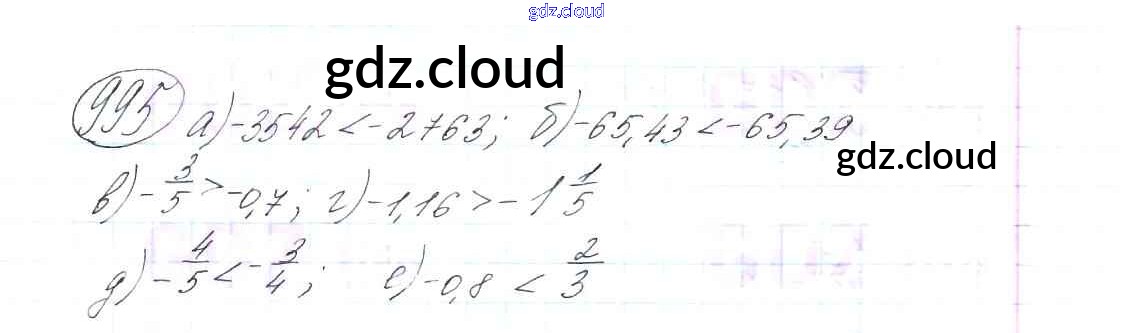 gdz.cloud
gdz.cloud
995 а) -3542 < -2763; б) -65,43 < -65,39
gdz.cloud
в) -3/5 > -0,7; г) -1,16 > -1 1/5
д) -4/5 < -3/4; е) -0,8 < 2/3